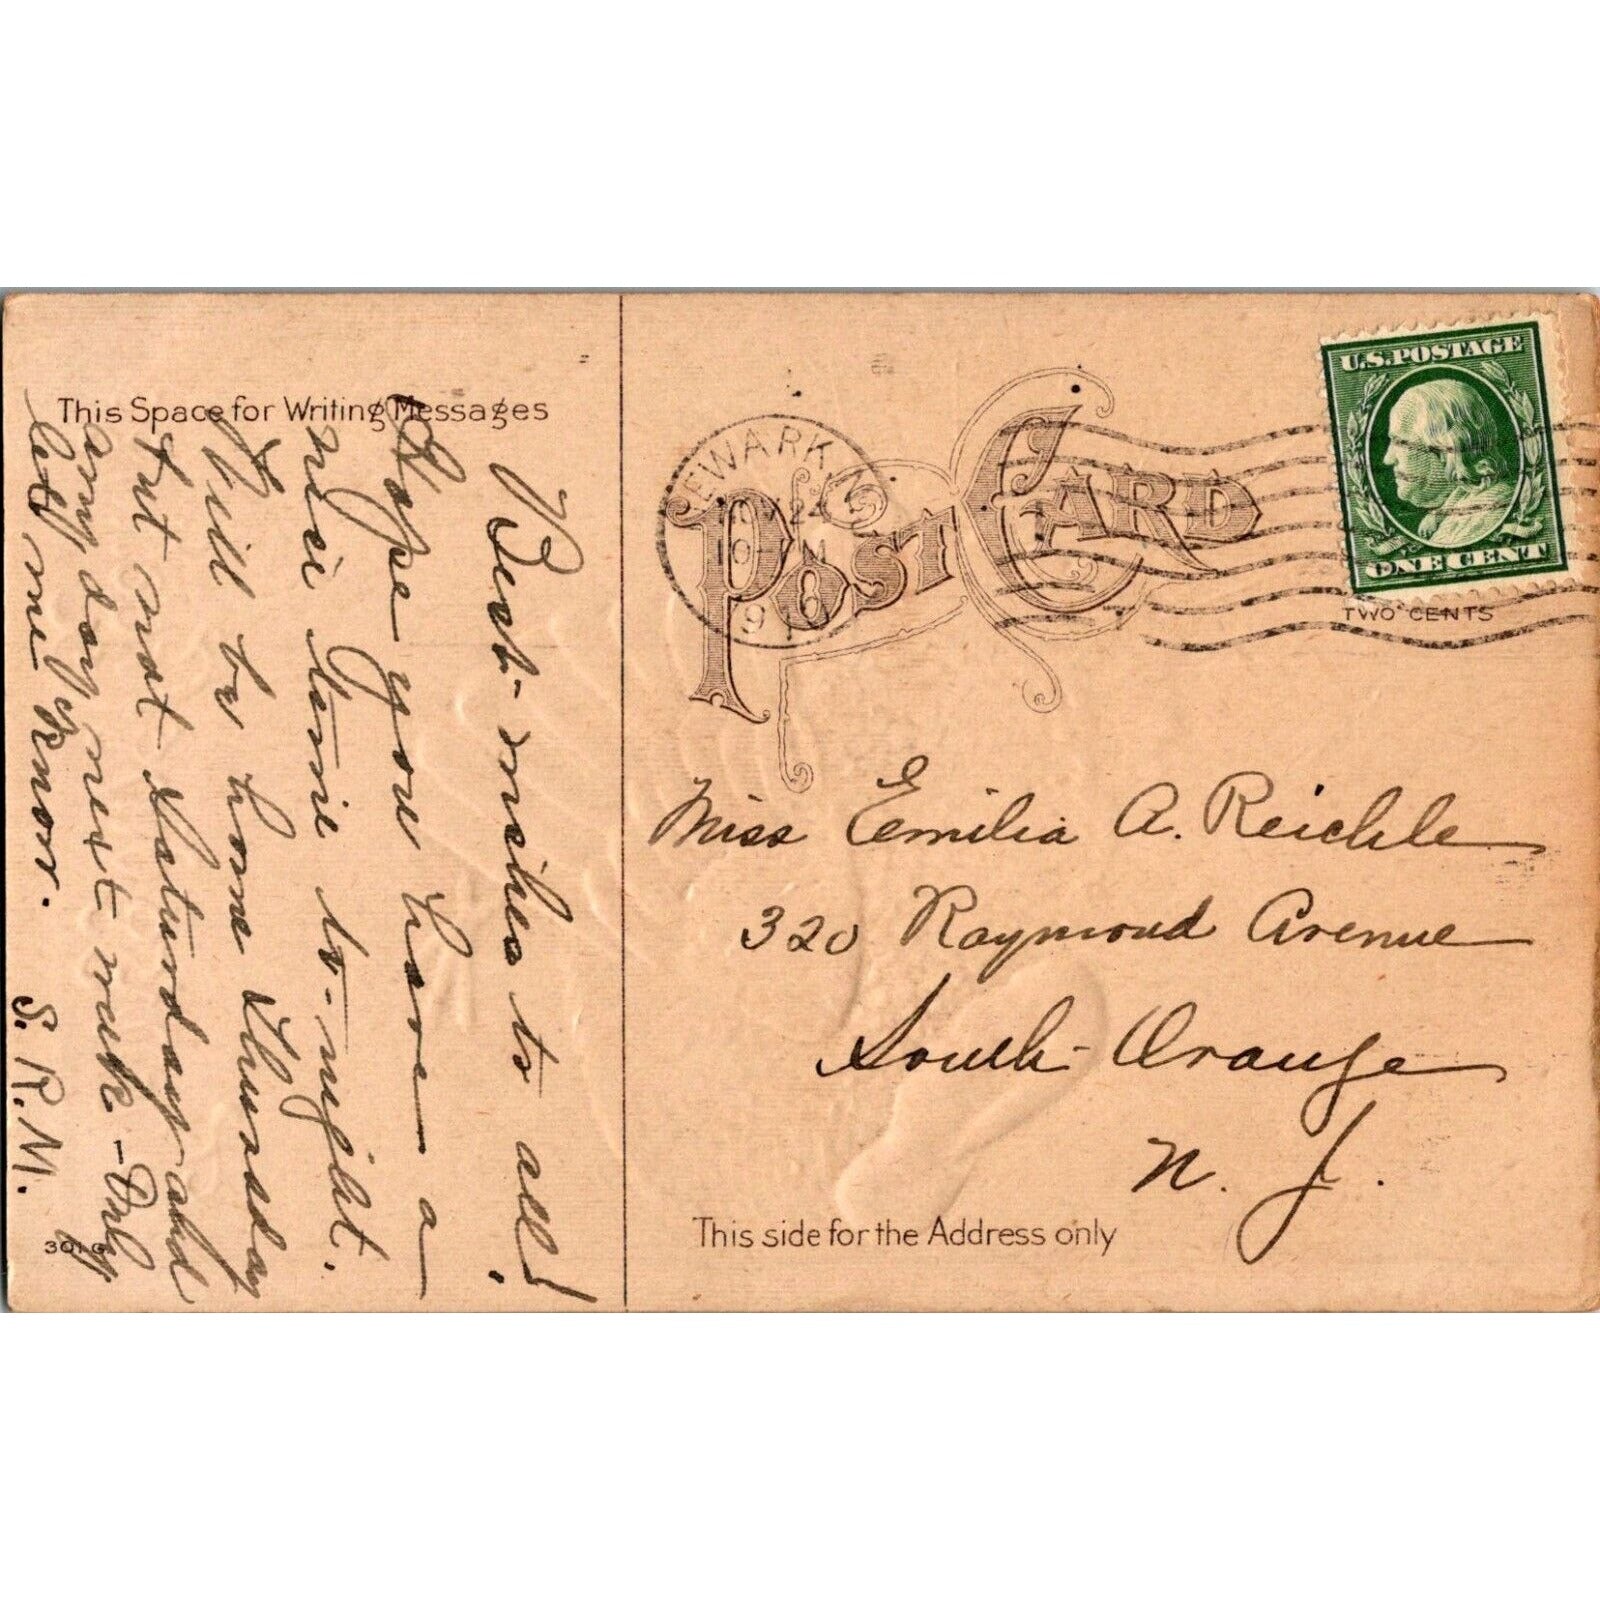 This Space for Writing Messages
Best-wishes to all!
Hope you have a
nice time to-night.
Will be home Thursday
but not Saturday and
any day next week - Only
let me know.
S. R. M.
301 G
NEWARK
1910
POST CARD
U.S. POSTAGE
ONE CENT
TWO CENTS
Miss Emilia A. Reichle
320 Raymond Avenue
South Orange
N. J.
This side for the Address only